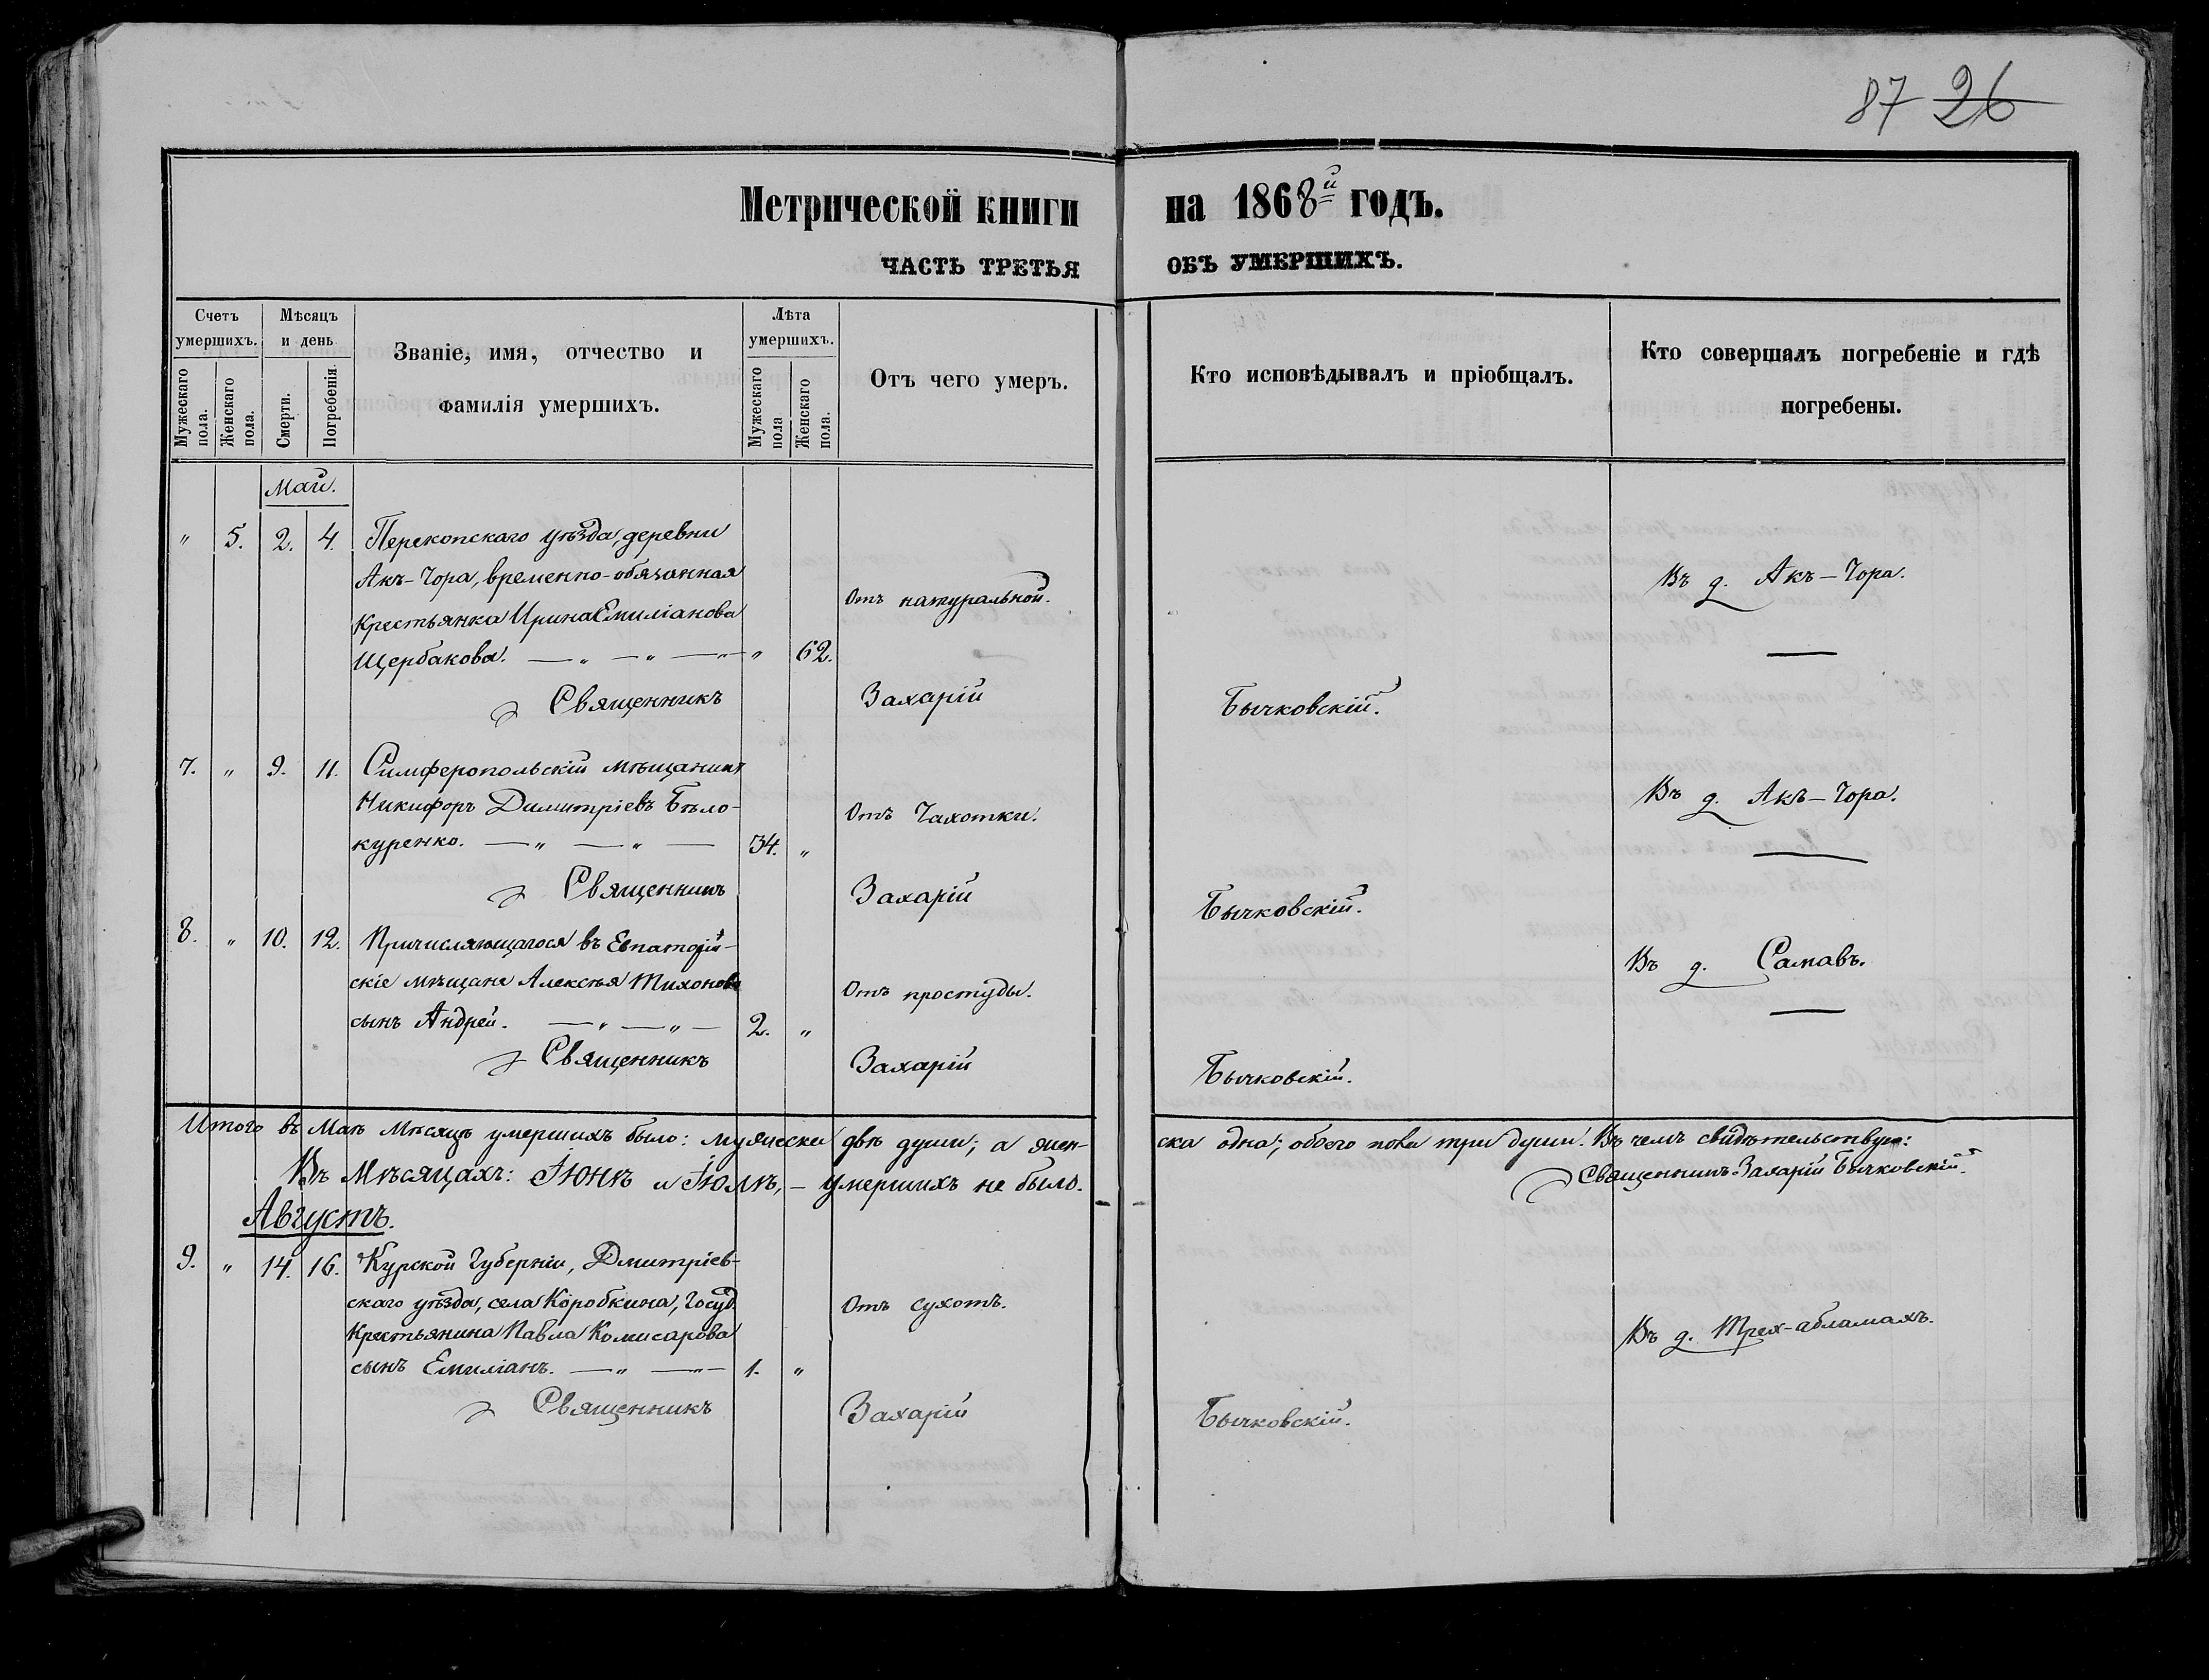 87 26
Метрической книги на 1868й годъ.
ЧАСТЬ ТРЕТЬЯ ОБЪ УМЕРШИХЪ.
Счетъ умершихъ.
Мѣсяцъ и день
Званіе, имя, отчество и фамилія умершихъ.
Лѣта умершихъ.
Отъ чего умеръ.
Кто исповѣдывалъ и пріобщалъ.
Кто совершалъ погребеніе и гдѣ погребены.
Мужескаго пола.
Женскаго пола.
Смерти.
Погребенія.
Мужескаго пола
Женскаго пола.
Май.
" 5. 2. 4. Перекопскаго уѣзда, деревни
Акъ-Чора, временно-обязанная
Въ д. Акъ-Чора.
Крестьянка Ирина Емиліанова
Отъ натуральной.
Щербакова. — " — " — " — " 62.
Священникъ Захарій Бычковскій.
7. " 9. 11. Симферопольскій мѣщанинъ
Никифоръ Димитріевъ Бѣло-
Отъ Чахотки.
Въ д. Акъ-Чора.
куренко. — " — " — 34. "
Священникъ Захарій Бычковскій.
8. " 10. 12. Причисляющагося въ Евпаторій-
скіе мѣщане Алексѣя Тихонова
Отъ простуды.
Въ д. Самавъ.
сынъ Андрей. — " — " — 2. "
Священникъ Захарій Бычковскій.
Итого въ Маѣ Мѣсяцѣ умершихъ было: мужеска двѣ души; а жен-ска одна; обоего пола три души. Въ чемъ свидѣтельствую:
Священникъ Захарій Бычковскій.
Въ Мѣсяцахъ: Іюнѣ и Іюлѣ, — умершихъ не было.
Августъ.
9. " 14. 16. Курской Губерніи, Дмитріев-
скаго уѣзда, села Коробкина, Госуд.
Отъ сухотъ.
Крестьянина Павла Комисарова
Въ д. Трех-абламахъ.
сынъ Емиліанъ. — " — " — 1. "
Священникъ Захарій Бычковскій.